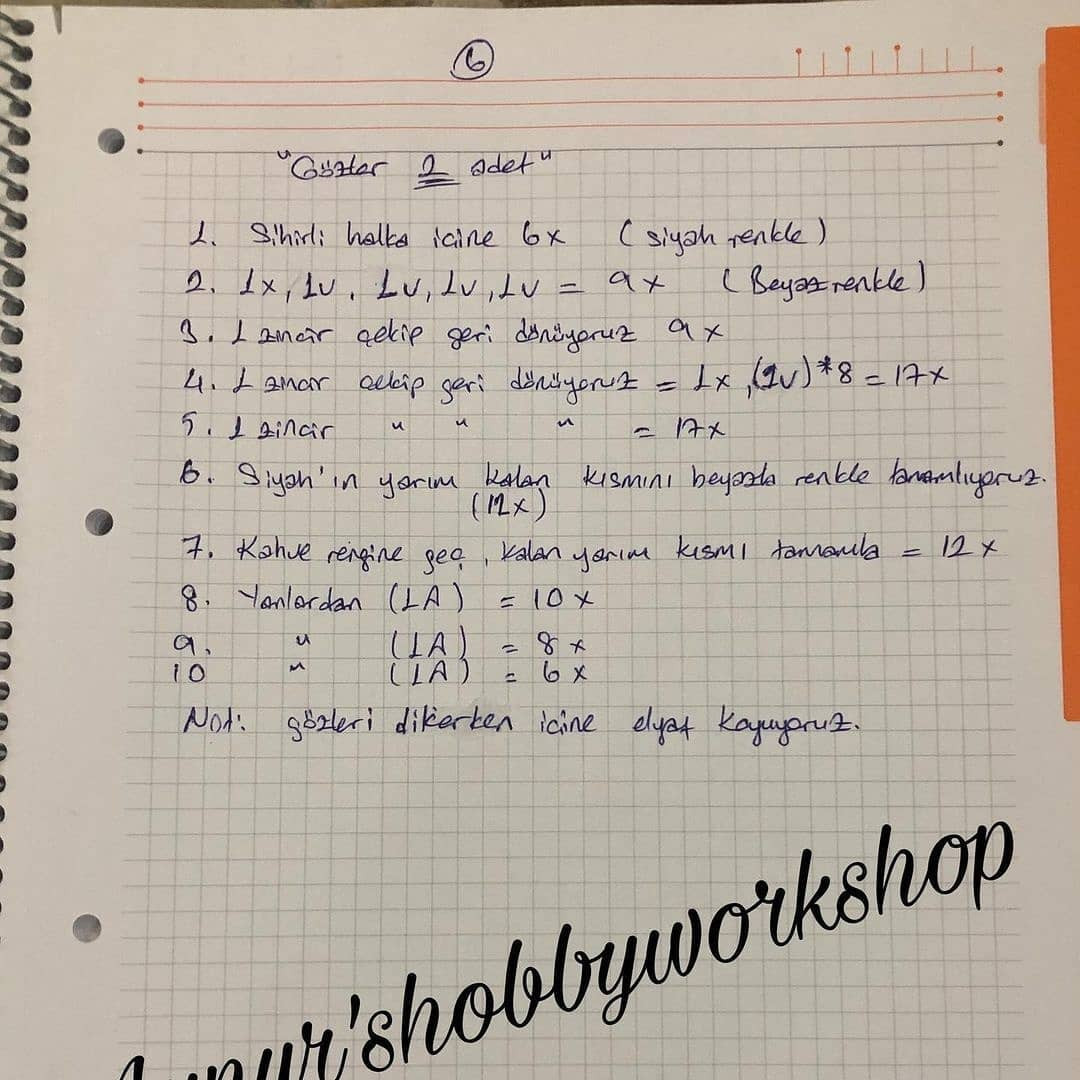 6
"Gözler 2 adet"
1. Sihirli halka içine 6x (siyah renkle)
2. 1x, 1v, 1v, 1v, 1v = 9x (Beyaz renkle)
3. 1 zincir çekip geri dönüyoruz 9x
4. 1 zincir çekip geri dönüyoruz = 1x, (1v)*8 = 17x
5. 1 zincir " " " = 17x
6. Siyah'ın yarım kalan kısmını beyazla renkle tamamlıyoruz.
(12x)
7. Kahve rengine geç, kalan yarım kısmı tamamla = 12x
8. Yanlardan (1A) = 10x
9. " (1A) = 8x
10 " (1A) = 6x
Not: gözleri dikerken içine elyaf koyuyoruz.
nur'shobbyworkshop